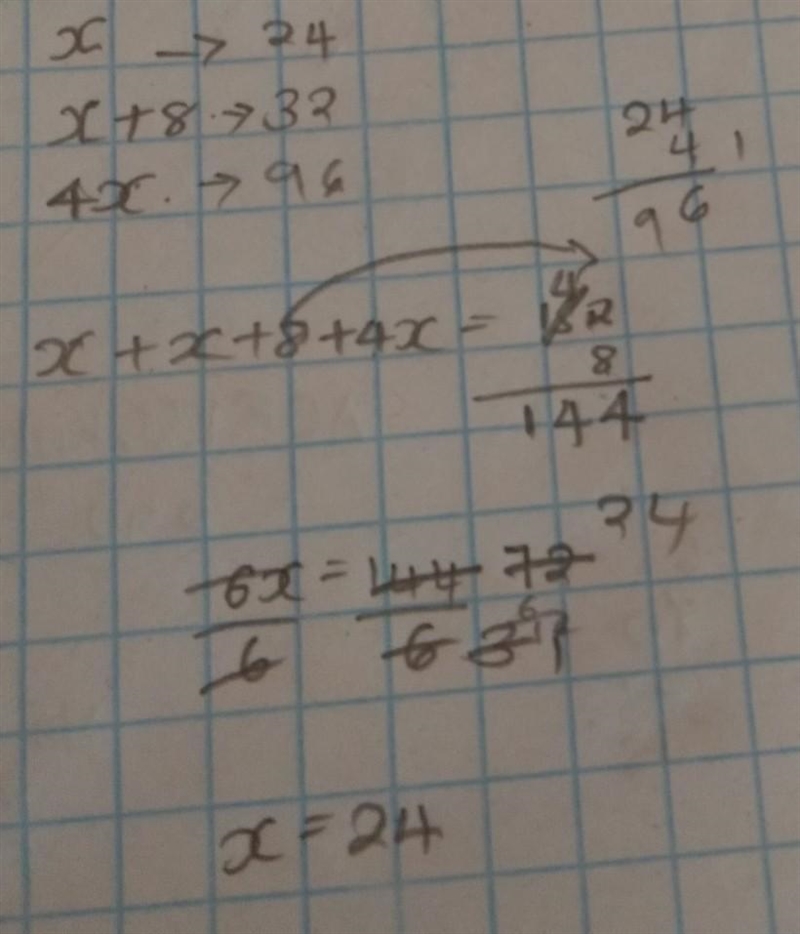 x → 24
x + 8 → 32
4x → 96
24
4 1
96
x + x + 8 + 4x = 152
4
8
144
6x = 144 72 24
6 6 3 1
x = 24